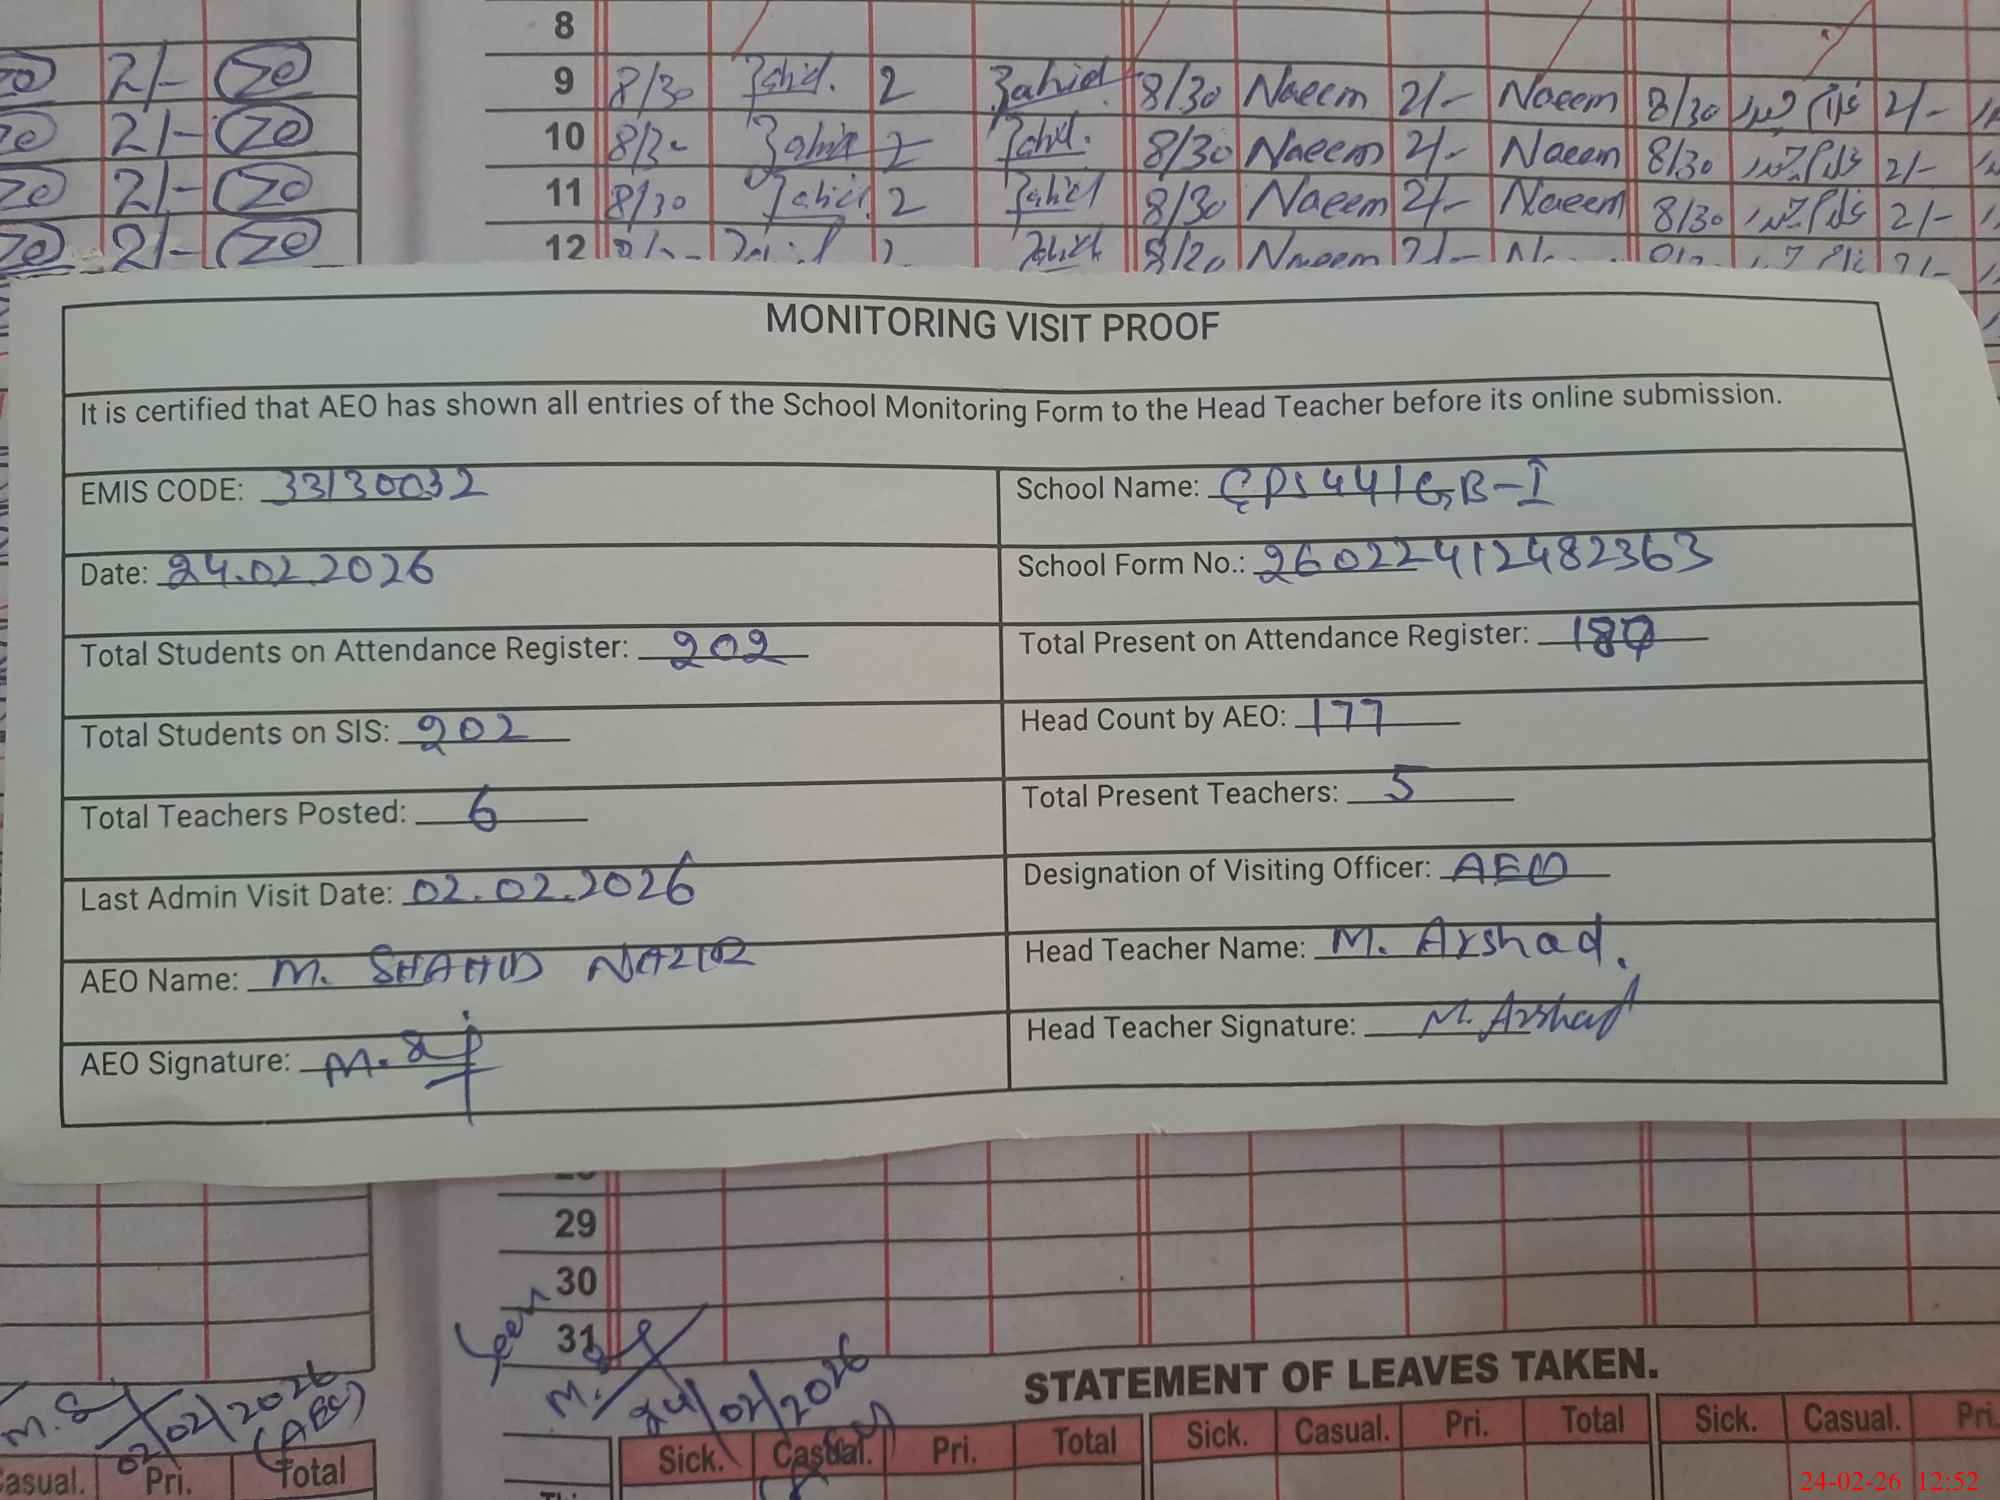 8
20 2/- 20 9 8/30 Zahid. 2 Zahid 8/30 Naeem 2/- Naeem 8/30 2/-
20 2/- 20 10 8/30 Zahid 2 Zahid. 8/30 Naeem 2/- Naeem 8/30 2/-
20 2/- 20 11 8/30 Zahid 2 Zahid 8/30 Naeem 2/- Naeem 8/30 2/-
20 2/- 20 12 Zahid Naeem
MONITORING VISIT PROOF
It is certified that AEO has shown all entries of the School Monitoring Form to the Head Teacher before its online submission.
EMIS CODE: 33130032
School Name: GPS 441GB-I
Date: 24.02.2026
School Form No.: 260224412482363
Total Students on Attendance Register: 202
Total Present on Attendance Register:
Total Students on SIS: 202
Head Count by AEO: 177
Total Teachers Posted: 6
Total Present Teachers: 5
Last Admin Visit Date: 02.02.2026
Designation of Visiting Officer: AEO
AEO Name: M. SHAHID NAZIR
Head Teacher Name: M. Arshad.
AEO Signature: M.
Head Teacher Signature: M. Arshad
29
30
31
Seen
M. 24/02/2026
M.S 02/02/2026
STATEMENT OF LEAVES TAKEN.
Casual. Pri. Total Sick. Casual. Pri. Total Sick. Casual. Pri. Total Sick. Casual. Pri.
24-02-26 12:52